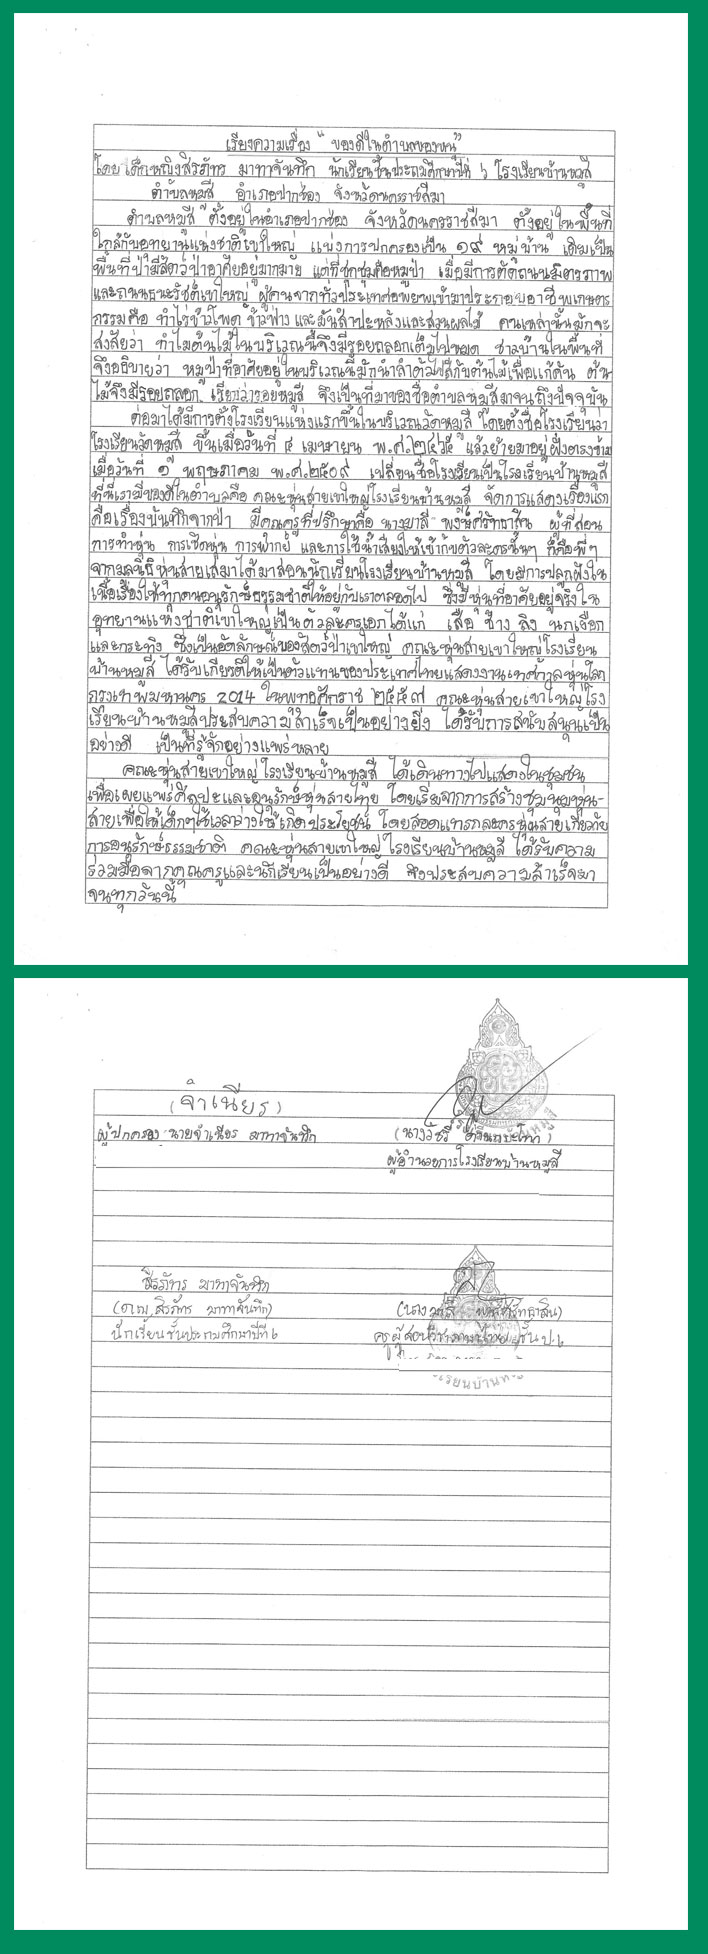 เรียงความเรื่อง " ของดีในตำบลของหนู"
โดย เด็กหญิงสิรภัทร มาทาจันทึก นักเรียนชั้นประถมศึกษาปีที่ ๖ โรงเรียนบ้านหมูสี
ตำบลหมูสี อำเภอปากช่อง จังหวัดนครราชสีมา
ตำบลหมูสี ตั้งอยู่ในอำเภอปากช่อง จังหวัดนครราชสีมา ตั้งอยู่ในพื้นที่
ใกล้กับอุทยานแห่งชาติเขาใหญ่ แบ่งการปกครองเป็น ๑๙ หมู่บ้าน เดิมเป็น
พื้นที่ป่ามีสัตว์ป่าอาศัยอยู่มากมาย แต่ที่ชุกชุมคือหมูป่า เมื่อมีการตัดถนนมิตรภาพ
และถนนธนะรัชต์เขาใหญ่ ผู้คนจากทั่วประเทศอพยพเข้ามาประกอบอาชีพเกษตร
กรรมคือ ทำไร่ข้าวโพด ข้าวฟ่าง และมันสำปะหลังและสวนผลไม้ คนเหล่านั้นมักจะ
สงสัยว่า ทำไมต้นไม้ในบริเวณนี้จึงมีรอยถลอกเต็มไปหมด ชาวบ้านในพื้นที่
จึงอธิบายว่า หมูป่าที่อาศัยอยู่ในบริเวณนี้มักนำลำตัวไปสีกับต้นไม้เพื่อแก้คัน ต้น
ไม้จึงมีรอยถลอก เรียกว่ารอยหมูสี จึงเป็นที่มาของชื่อตำบลหมูสีมาจนถึงปัจจุบัน
ต่อมาได้มีการตั้งโรงเรียนแห่งแรกขึ้นในบริเวณวัดหมูสี โดยตั้งชื่อโรงเรียนว่า
โรงเรียนวัดหมูสี ขึ้นเมื่อวันที่ ๔ เมษายน พ.ศ.๒๔๖๕ แล้วย้ายมาอยู่ฝั่งตรงข้าม
เมื่อวันที่ ๑ พฤษภาคม พ.ศ.๒๕๐๙ เปลี่ยนชื่อโรงเรียนเป็นโรงเรียนบ้านหมูสี
ที่นี่เรามีของดีในตำบลคือ คณะหุ่นสายเขาใหญ่โรงเรียนบ้านหมูสี จัดการแสดงเรื่องแรก
คือเรื่องบันทึกจากป่า มีคุณครูที่ปรึกษาคือ นางมาลี พงษ์ศรัทธาสิน ผู้ที่สอน
การทำหุ่น การเชิดหุ่น การพากย์ และการใช้น้ำเสียงให้เข้ากับตัวละครนั้นๆ ก็คือพี่ๆ
จากมูลนิธิหุ่นสายเสมาได้มาสอนนักเรียนโรงเรียนบ้านหมูสี โดยมีการปลูกฝังใน
เนื้อเรื่องให้ทุกคนอนุรักษ์ธรรมชาติให้อยู่กับเราตลอดไป ซึ่งมีหุ่นที่อาศัยอยู่จริงใน
อุทยานแห่งชาติเขาใหญ่เป็นตัวละครเอกได้แก่ เสือ ช้าง ลิง นกเงือก
และกระทิง ซึ่งเป็นอัตลักษณ์ของสัตว์ป่าเขาใหญ่ คณะหุ่นสายเขาใหญ่โรงเรียน
บ้านหมูสี ได้รับเกียรติให้เป็นตัวแทนของประเทศไทยแสดงงานเทศกาลหุ่นโลก
กรุงเทพมหานคร 2014 ในพุทธศักราช ๒๕๕๗ คณะหุ่นสายเขาใหญ่โรง
เรียนบ้านหมูสีประสบความสำเร็จเป็นอย่างยิ่ง ได้รับการสนับสนุนเป็น
อย่างดี เป็นที่รู้จักอย่างแพร่หลาย
คณะหุ่นสายเขาใหญ่โรงเรียนบ้านหมูสี ได้เดินทางไปแสดงในชุมชน
เพื่อเผยแพร่ศิลปะและอนุรักษ์หุ่นสายไทย โดยเริ่มจากการสร้างชุมนุมหุ่น-
สายเพื่อให้เด็กๆใช้เวลาว่างให้เกิดประโยชน์ โดยสอดแทรกละครหุ่นสายเกี่ยวกับ
การอนุรักษ์ธรรมชาติ คณะหุ่นสายเขาใหญ่โรงเรียนบ้านหมูสี ได้รับความ
ร่วมมือจากคุณครูและนักเรียนเป็นอย่างดี จึงประสบความสำเร็จมา
จนทุกวันนี้
(จำเนียร)
ผู้ปกครอง นายจำเนียร มาทาจันทึก
(นางวัชรี
ผู้อำนวยการโรงเรียนบ้านหมูสี
สิรภัทร มาทาจันทึก
(ด.ญ.สิรภัทร มาทาจันทึก)
นักเรียนชั้นประถมศึกษาปีที่ ๖
(นางมาลี พงษ์ศรัทธาสิน)
ครูผู้สอนวิชาภาษาไทย ชั้น ป.๖